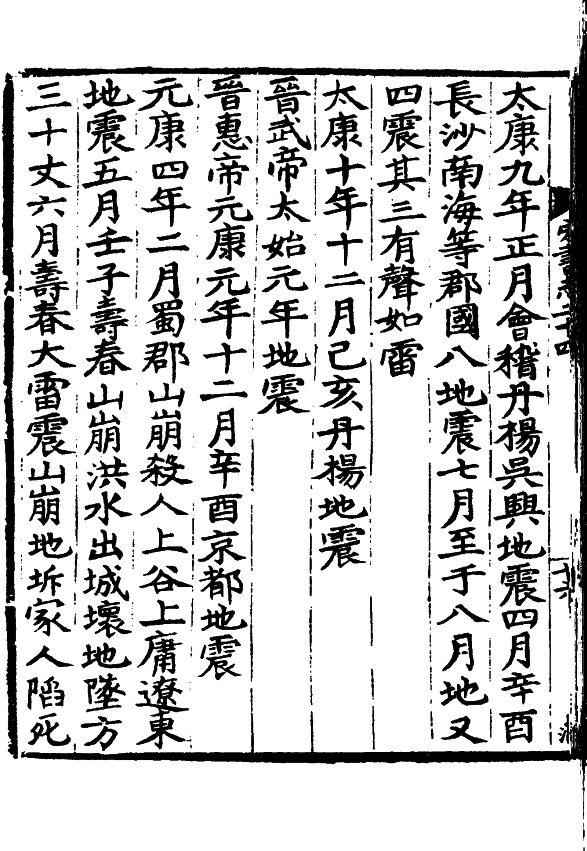 太康九年正月會稽丹楊吳興地震四月辛酉
長沙南海等郡國八地震七月至于八月地又
四震其三有聲如雷
太康十年十二月己亥丹楊地震
晉武帝太始元年地震
晉惠帝元康元年十二月辛酉京都地震
元康四年二月蜀郡山崩殺人上谷上庸遼東
地震五月壬子壽春山崩洪水出城壞地墜方
三十丈六月壽春大雷震山崩地坼家人陷死